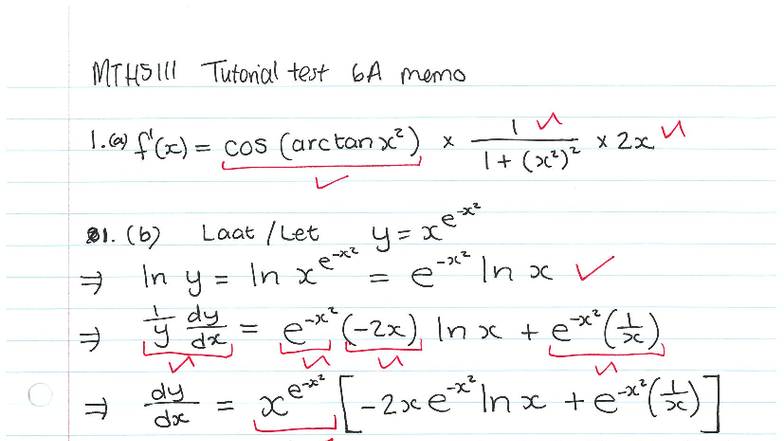 MTHS111 Tutorial test 6A memo
1.(a) f'(x) = cos (arctan x²) × 1/(1 + (x²)²) × 2x
1. (b) Laat / Let y = x^(e^(-x²))
⇒ ln y = ln x^(e^(-x²)) = e^(-x²) ln x
⇒ 1/y dy/dx = e^(-x²) (-2x) ln x + e^(-x²) (1/x)
⇒ dy/dx = x^(e^(-x²)) [-2x e^(-x²) ln x + e^(-x²) (1/x)]